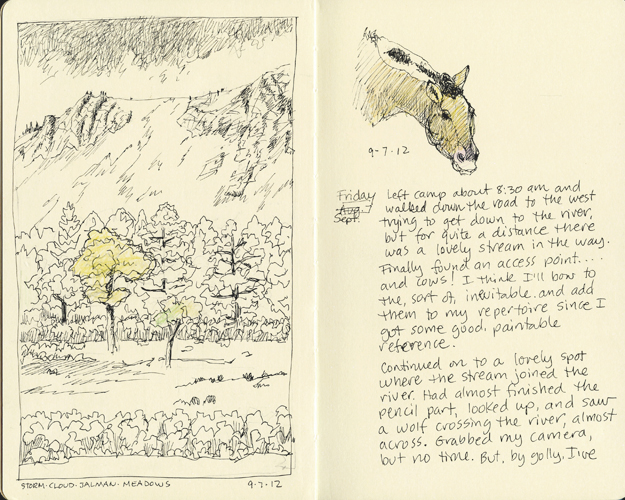 STORM·CLOUD·JALMAN·MEADOWS
9·7·12
9·7·12
Friday
Aug. 7
Sept.
Left camp about 8:30 am and
walked down the road to the west
trying to get down to the river,
but for quite a distance there
was a lovely stream in the way.
Finally found an access point....
and cows! I think I'll bow to
the, sort of, inevitable and add
them to my repertoire since I
got some good, paintable
reference.
Continued on to a lovely spot
where the stream joined the
river. Had almost finished the
pencil part, looked up, and saw
a wolf crossing the river, almost
across. Grabbed my camera,
but no time. But, by golly, I've